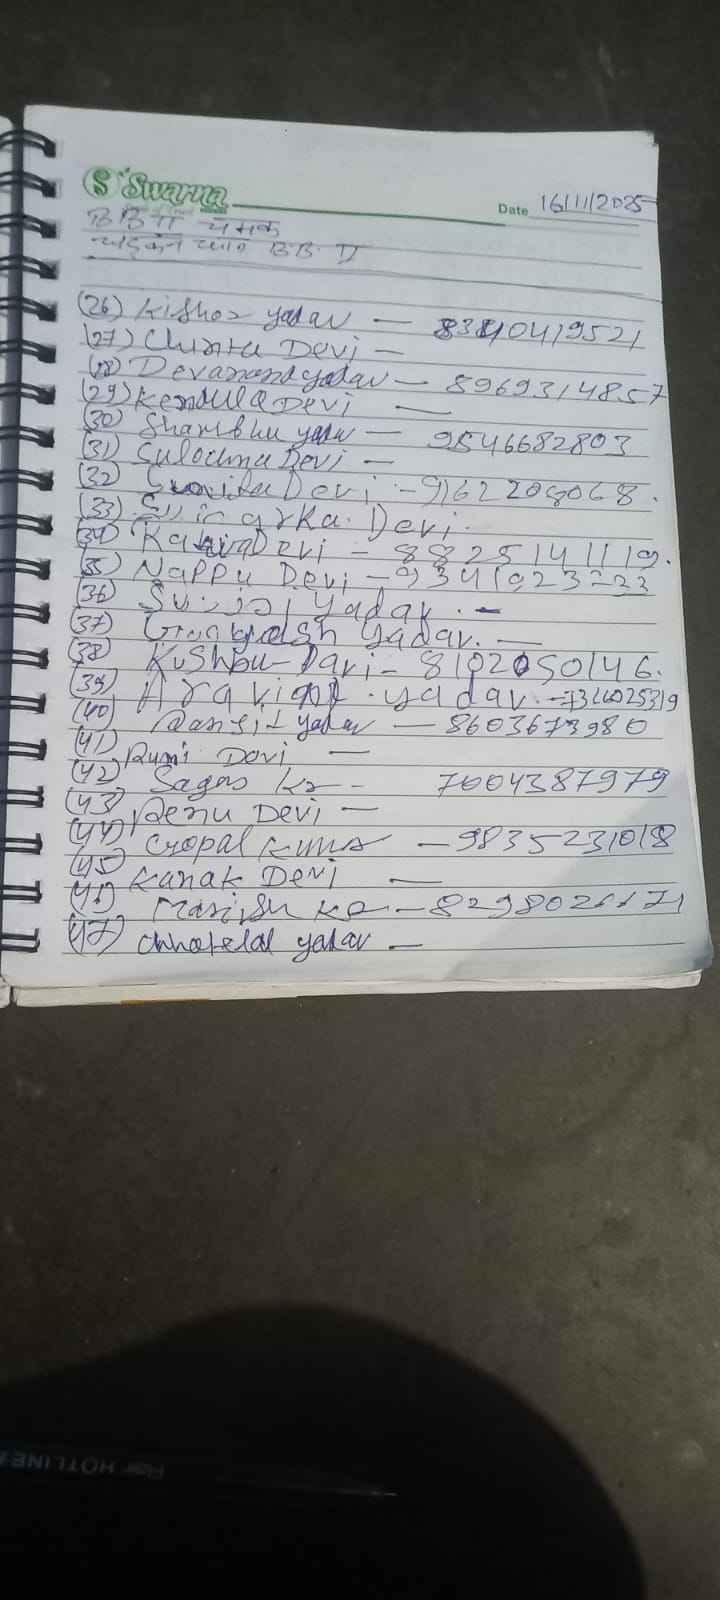 Swarna
Date 16/11/2025
BB
BB. II
(26) Kishor yadav — 8340419521
(27) Chinta Devi —
(28) Devanand yadav — 8969314857
(29) Kendula Devi —
(30) Shambhu yadav — 9546682803
(31) Sulochna Devi —
(32) Sunita Devi - 9162208068.
(33) Devi.
(34) Devi — 8825141119.
35) Nappu Devi — 9341923233
(36) yadav. -
(37) yadav. —
(38) Kushbu Davi - 8102050146.
(39) Aravind. yadav.
(40) Ranjit yadav — 8603673980
(41) Devi —
(42) Sagar Kr - 7004387979
(43) Renu Devi —
(44) Gopal Kumar — 9835231018
(45) Kanak Devi —
(46) Manish Kr
(47) chhotelal yadav —
For HOTLINE